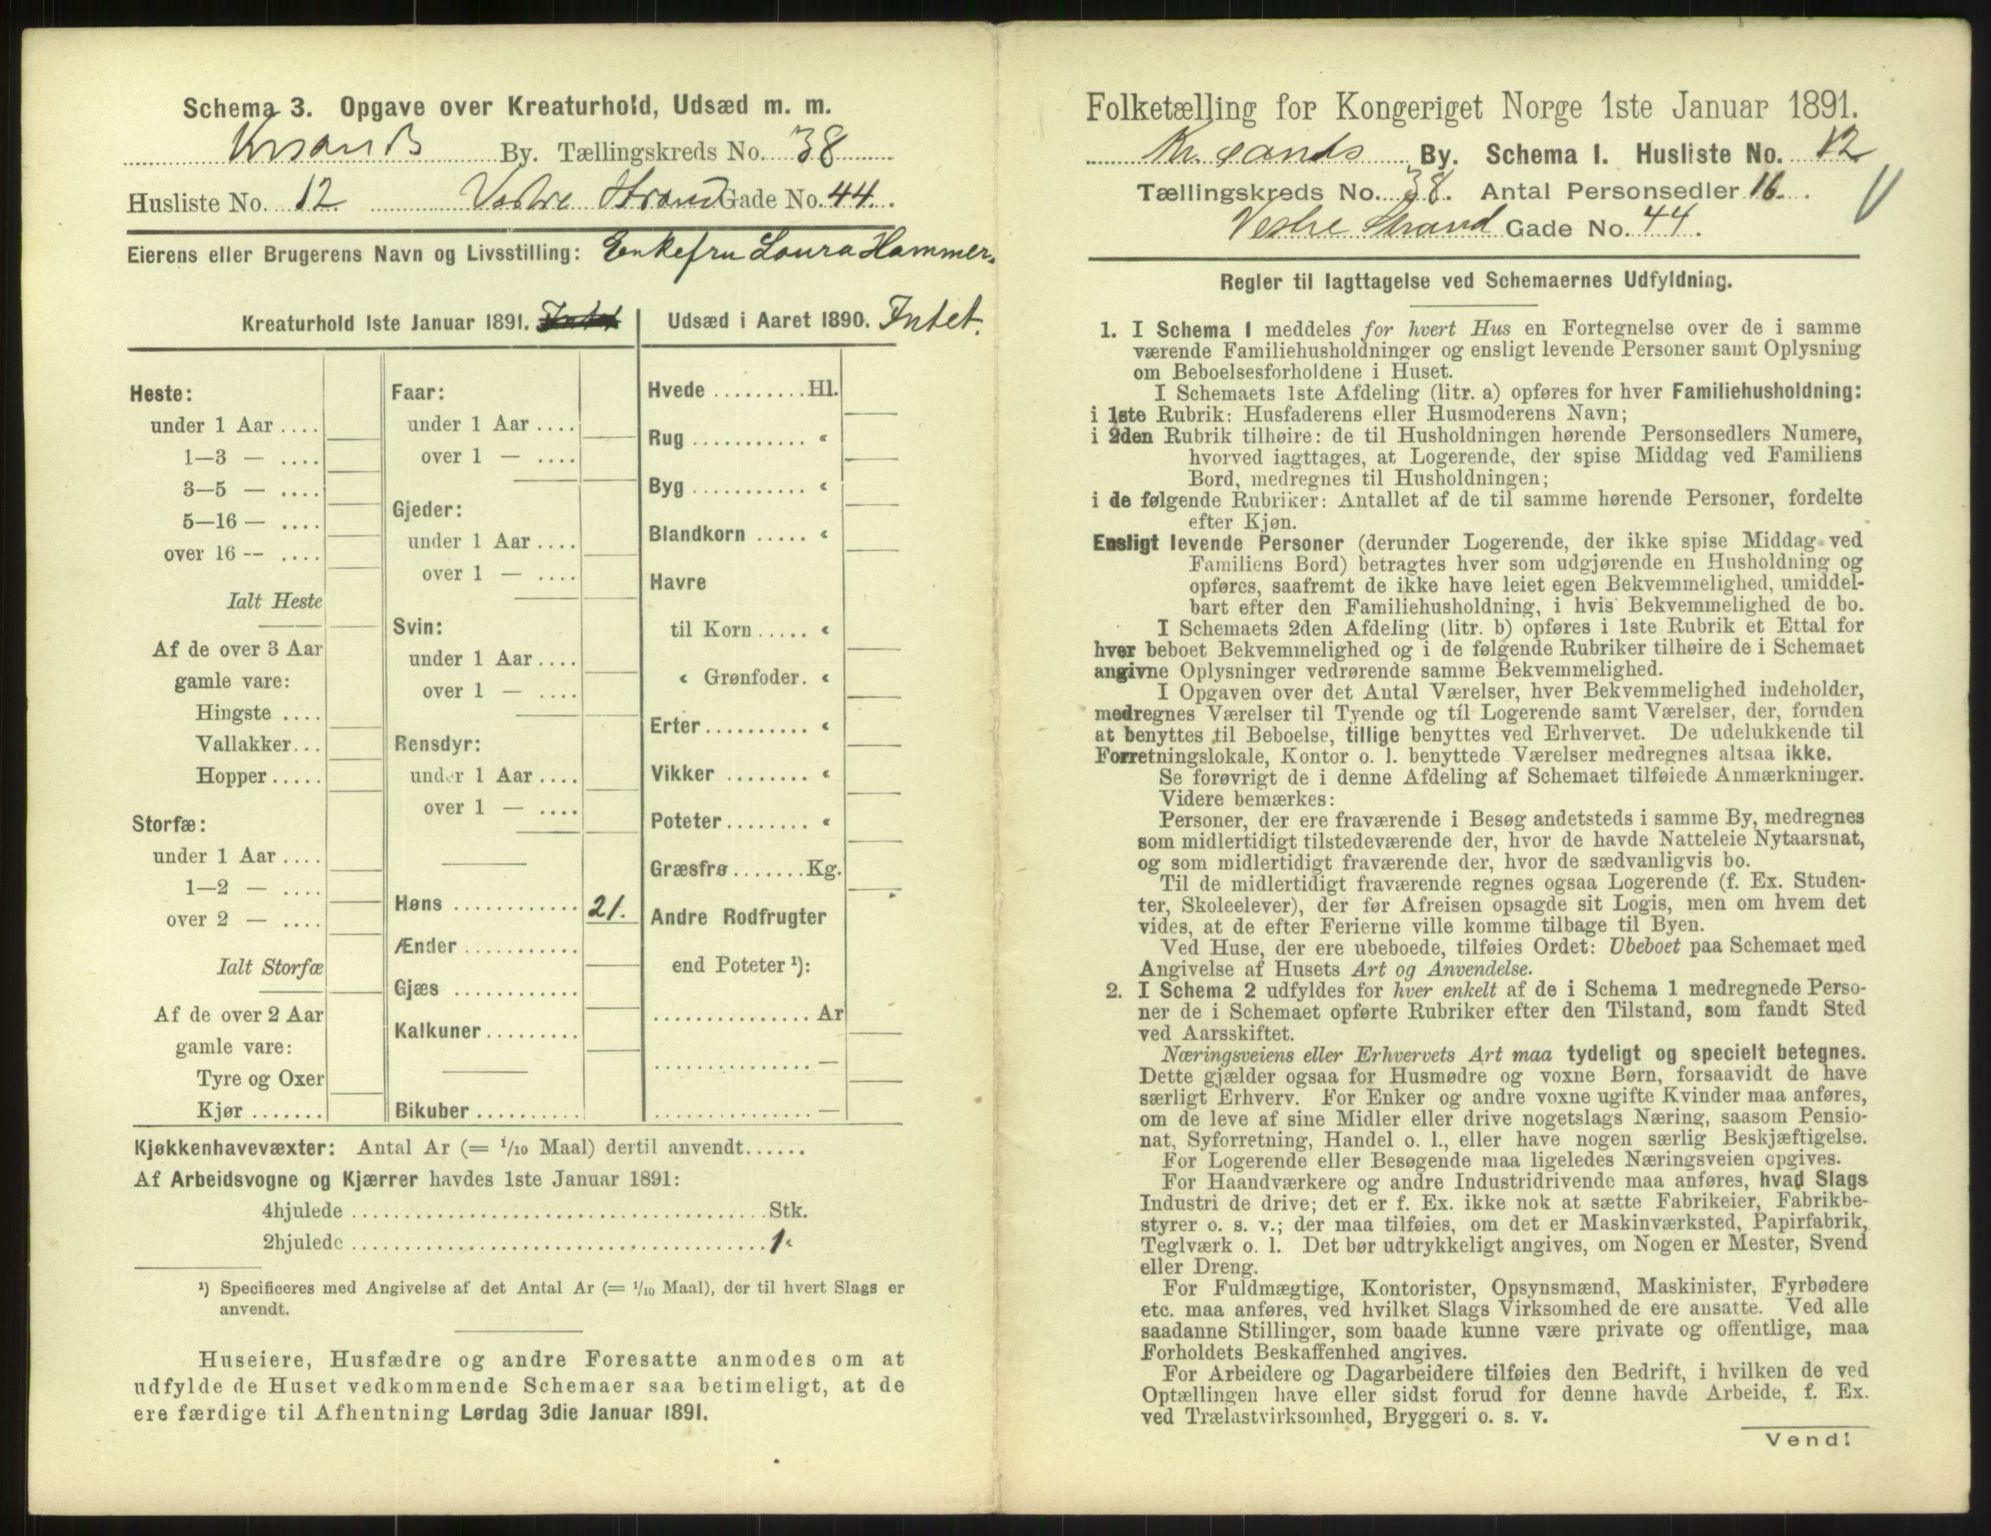 Schema 3. Opgave over Kreaturhold, Udsæd m. m.
KrsandB By. Tællingskreds No. 38
Husliste No. 12 Vestre Strand Gade No. 44.
Eierens eller Brugerens Navn og Livsstilling: Enkefru Laura Hammer.
Kreaturhold 1ste Januar 1891. Intet
Heste:
under 1 Aar ....
1—3 — ....
3—5 — ....
5—16 — ....
over 16 — ....
Ialt Heste
Af de over 3 Aar
gamle vare:
Hingste ....
Vallakker...
Hopper .....
Storfæ:
under 1 Aar ....
1—2 — ....
over 2 — ....
Ialt Storfæ
Af de over 2 Aar
gamle vare:
Tyre og Oxer
Kjør .......
Faar:
under 1 Aar ....
over 1 — ....
Gjeder:
under 1 Aar ....
over 1 — ....
Svin:
under 1 Aar ....
over 1 — ....
Rensdyr:
under 1 Aar ....
over 1 — ....
Høns ............ 21.
Ænder ...........
Gjæs ............
Kalkuner .........
Bikuber ..........
Udsæd i Aaret 1890. Intet.
Hvede ........ Hl.
Rug .......... «
Byg .......... «
Blandkorn ..... «
Havre
til Korn ..... «
« Grønfoder. «
Erter ......... «
Vikker ........ «
Poteter ........ «
Græsfrø ....... Kg.
Andre Rodfrugter
end Poteter ¹):
............... Ar
............... —
............... —
Kjøkkenhavevæxter: Antal Ar (= 1/10 Maal) dertil anvendt......
Af Arbeidsvogne og Kjærrer havdes 1ste Januar 1891:
4hjulede ........................................ Stk.
2hjulede ........................................ 1 «
¹) Specificeres med Angivelse af det Antal Ar (= 1/10 Maal), der til hvert Slags er
anvendt.
Huseiere, Husfædre og andre Foresatte anmodes om at
udfylde de Huset vedkommende Schemaer saa betimeligt, at de
ere færdige til Afhentning Lørdag 3die Januar 1891.
Folketælling for Kongeriget Norge 1ste Januar 1891.
Kr.sands By. Schema 1. Husliste No. 12
Tællingskreds No. 38. Antal Personsedler 16.
Vestre Strand Gade No. 44.
Regler til Iagttagelse ved Schemaernes Udfyldning.
1. I Schema 1 meddeles for hvert Hus en Fortegnelse over de i samme
værende Familiehusholdninger og ensligt levende Personer samt Oplysning
om Beboelsesforholdene i Huset.
I Schemaets 1ste Afdeling (litr. a) opføres for hver Familiehusholdning:
i 1ste Rubrik: Husfaderens eller Husmoderens Navn;
i 2den Rubrik tilhøire: de til Husholdningen hørende Personsedlers Numere,
hvorved iagttages, at Logerende, der spise Middag ved Familiens
Bord, medregnes til Husholdningen;
i de følgende Rubriker: Antallet af de til samme hørende Personer, fordelte
efter Kjøn.
Ensligt levende Personer (derunder Logerende, der ikke spise Middag ved
Familiens Bord) betragtes hver som udgjørende en Husholdning og
opføres, saafremt de ikke have leiet egen Bekvemmelighed, umiddel-
bart efter den Familiehusholdning, i hvis Bekvemmelighed de bo.
I Schemaets 2den Afdeling (litr. b) opføres i 1ste Rubrik et Ettal for
hver beboet Bekvemmelighed og i de følgende Rubriker tilhøire de i Schemaet
angivne Oplysninger vedrørende samme Bekvemmelighed.
I Opgaven over det Antal Værelser, hver Bekvemmelighed indeholder,
medregnes Værelser til Tyende og til Logerende samt Værelser, der, foruden
at benyttes til Beboelse, tillige benyttes ved Erhvervet. De udelukkende til
Forretningslokale, Kontor o. l. benyttede Værelser medregnes altsaa ikke.
Se forøvrigt de i denne Afdeling af Schemaet tilføiede Anmærkninger.
Videre bemærkes:
Personer, der ere fraværende i Besøg andetsteds i samme By, medregnes
som midlertidigt tilstedeværende der, hvor de havde Natteleie Nytaarsnat,
og som midlertidigt fraværende der, hvor de sædvanligvis bo.
Til de midlertidigt fraværende regnes ogsaa Logerende (f. Ex. Studen-
ter, Skoleelever), der før Afreisen opsagde sit Logis, men om hvem det
vides, at de efter Ferierne ville komme tilbage til Byen.
Ved Huse, der ere ubeboede, tilføies Ordet: Ubeboet paa Schemaet med
Angivelse af Husets Art og Anvendelse.
2. I Schema 2 udfyldes for hver enkelt af de i Schema 1 medregnede Perso-
ner de i Schemaet opførte Rubriker efter den Tilstand, som fandt Sted
ved Aarsskiftet.
Næringsveiens eller Erhvervets Art maa tydeligt og specielt betegnes.
Dette gjælder ogsaa for Husmødre og voxne Børn, forsaavidt de have
særligt Erhverv. For Enker og andre voxne ugifte Kvinder maa anføres,
om de leve af sine Midler eller drive nogetslags Næring, saasom Pensio-
nat, Syforretning, Handel o. l., eller have nogen særlig Beskjæftigelse.
For Logerende eller Besøgende maa ligeledes Næringsveien opgives.
For Haandværkere og andre Industridrivende maa anføres, hvad Slags
Industri de drive; det er f. Ex. ikke nok at sætte Fabrikeier, Fabrikbe-
styrer o. s. v.; der maa tilføies, om det er Maskinværksted, Papirfabrik,
Teglværk o. l. Det bør udtrykkeligt angives, om Nogen er Mester, Svend
eller Dreng.
For Fuldmægtige, Kontorister, Opsynsmænd, Maskinister, Fyrbødere
etc. maa anføres, ved hvilket Slags Virksomhed de ere ansatte. Ved alle
saadanne Stillinger, som baade kunne være private og offentlige, maa
Forholdets Beskaffenhed angives.
For Arbeidere og Dagarbeidere tilføies den Bedrift, i hvilken de ved
Optællingen have eller sidst forud for denne havde Arbeide, f. Ex.
ved Trælastvirksomhed, Bryggeri o. s. v.
Vend!